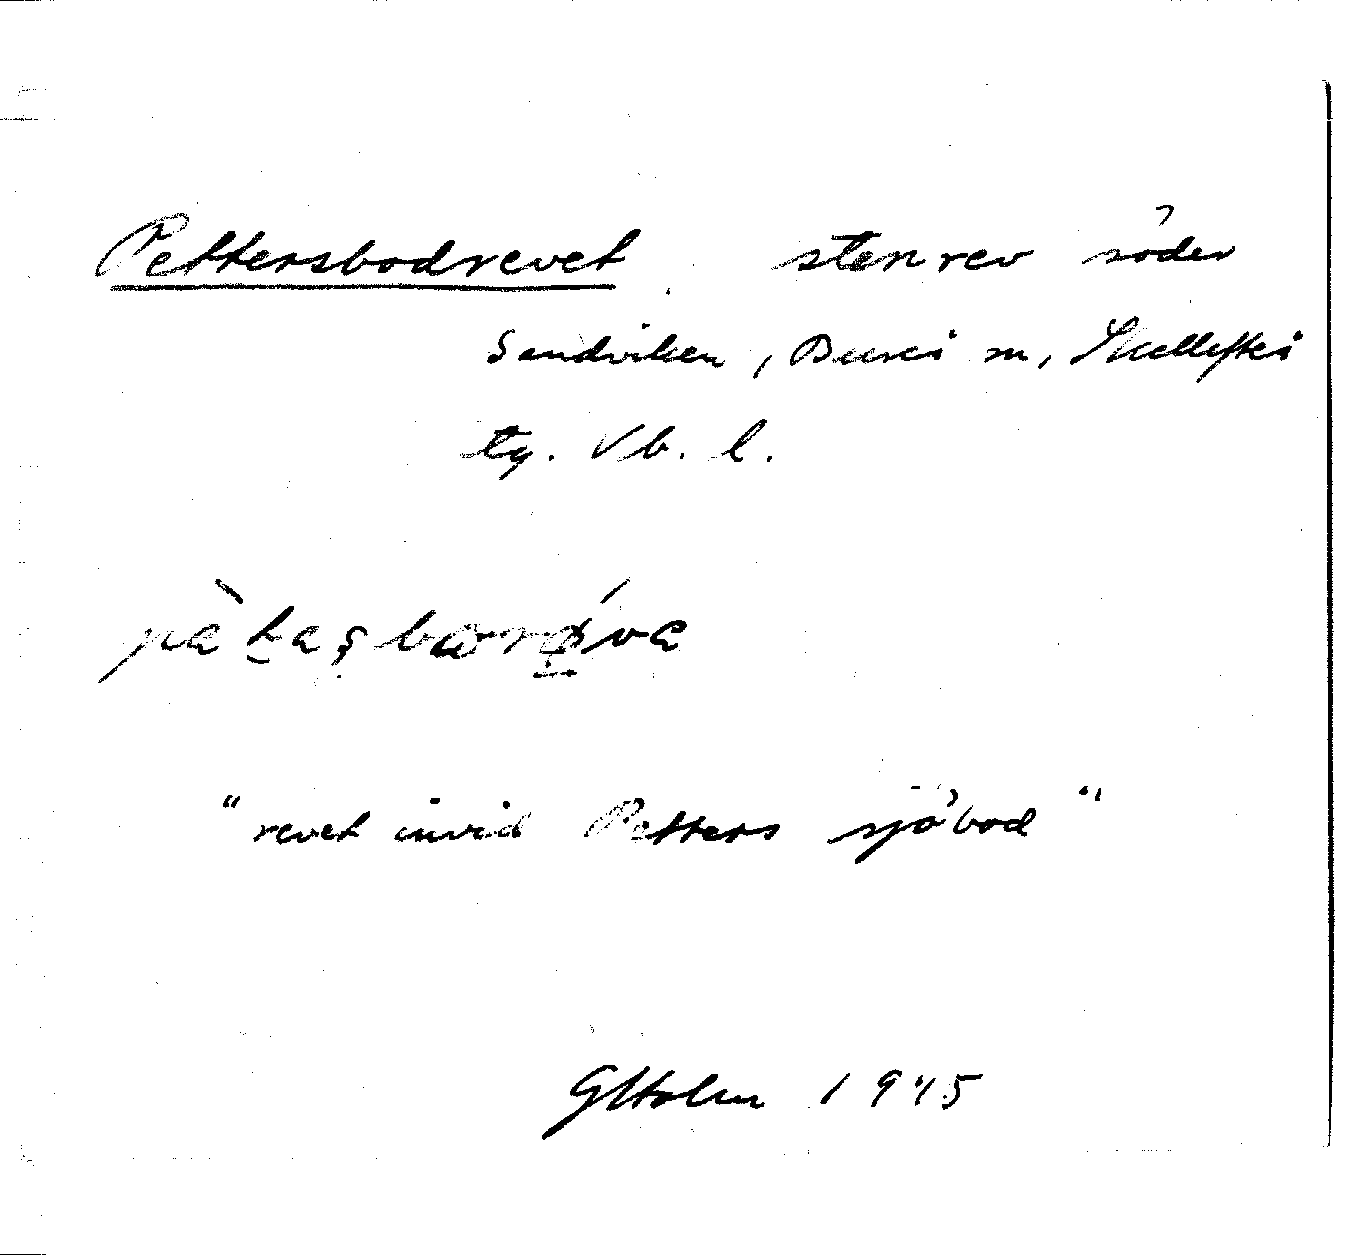 Pettersbodrevet stenrev söder
Sandviken, Bureå sn, Skellefteå
tg. Vb. l.
"revet invid Petters sjöbod"
GHolm 1945